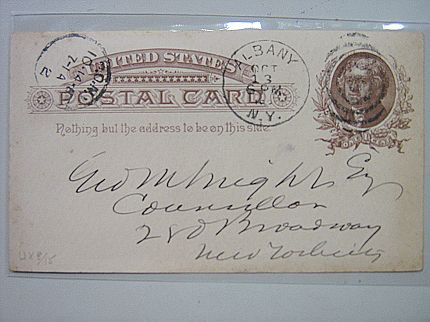 UNITED STATES
POSTAL CARD
Nothing but the address to be on this side
ALBANY
OCT
13
6 PM
N.Y.
Geo M Wright Esq
Counsellor
280 Broadway
New York City